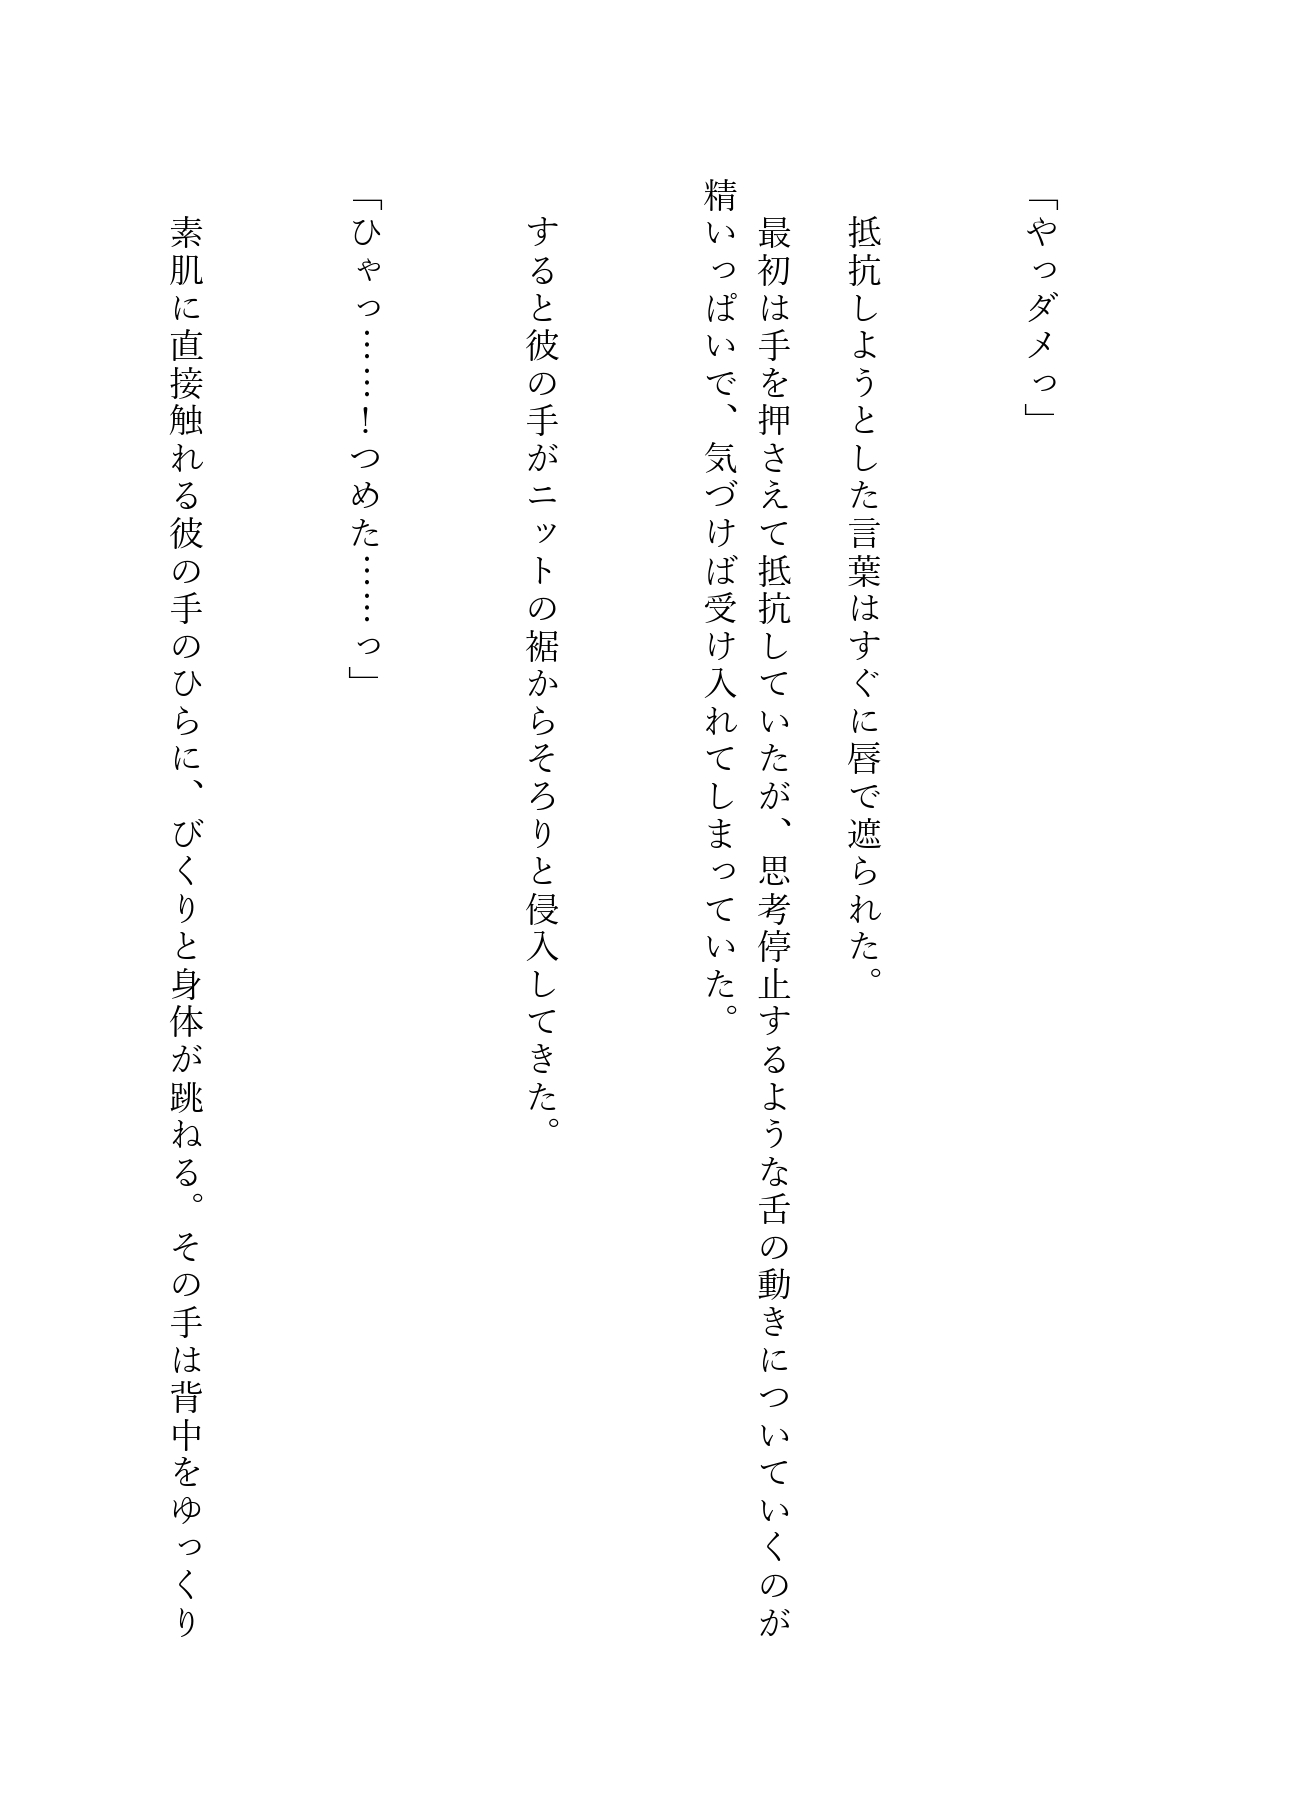 「やっダメっ」
抵抗しようとした言葉はすぐに唇で遮られた。
最初は手を押さえて抵抗していたが、思考停止するような舌の動きについていくのが
精いっぱいで、気づけば受け入れてしまっていた。
すると彼の手がニットの裾からそろりと侵入してきた。
「ひゃっ……！つめた……っ」
素肌に直接触れる彼の手のひらに、びくりと身体が跳ねる。その手は背中をゆっくり